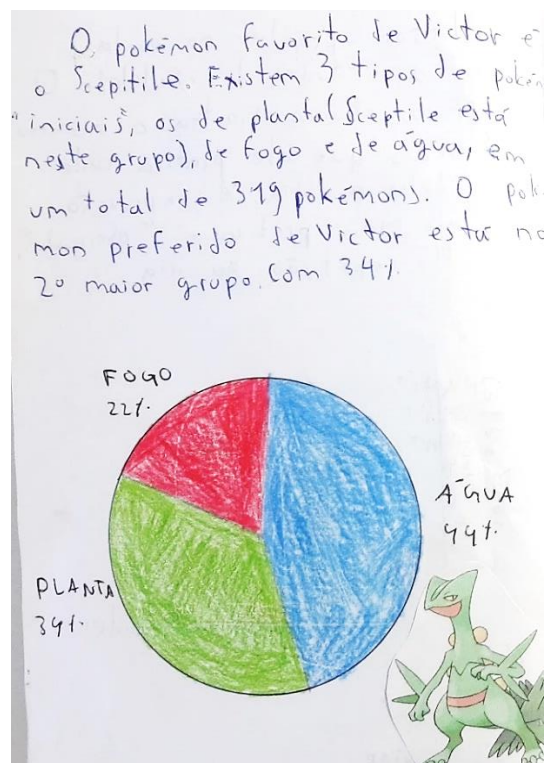 O pokémon favorito de Victor é
o Scepitile. Existem 3 tipos de pokém
"iniciais", os de planta (Sceptile está
neste grupo), de fogo e de água, em
um total de 319 pokémons. O pok
mon preferido de Victor está no
2º maior grupo. Com 34%.
FOGO
22%.
ÁGUA
44%.
PLANTA
34%.